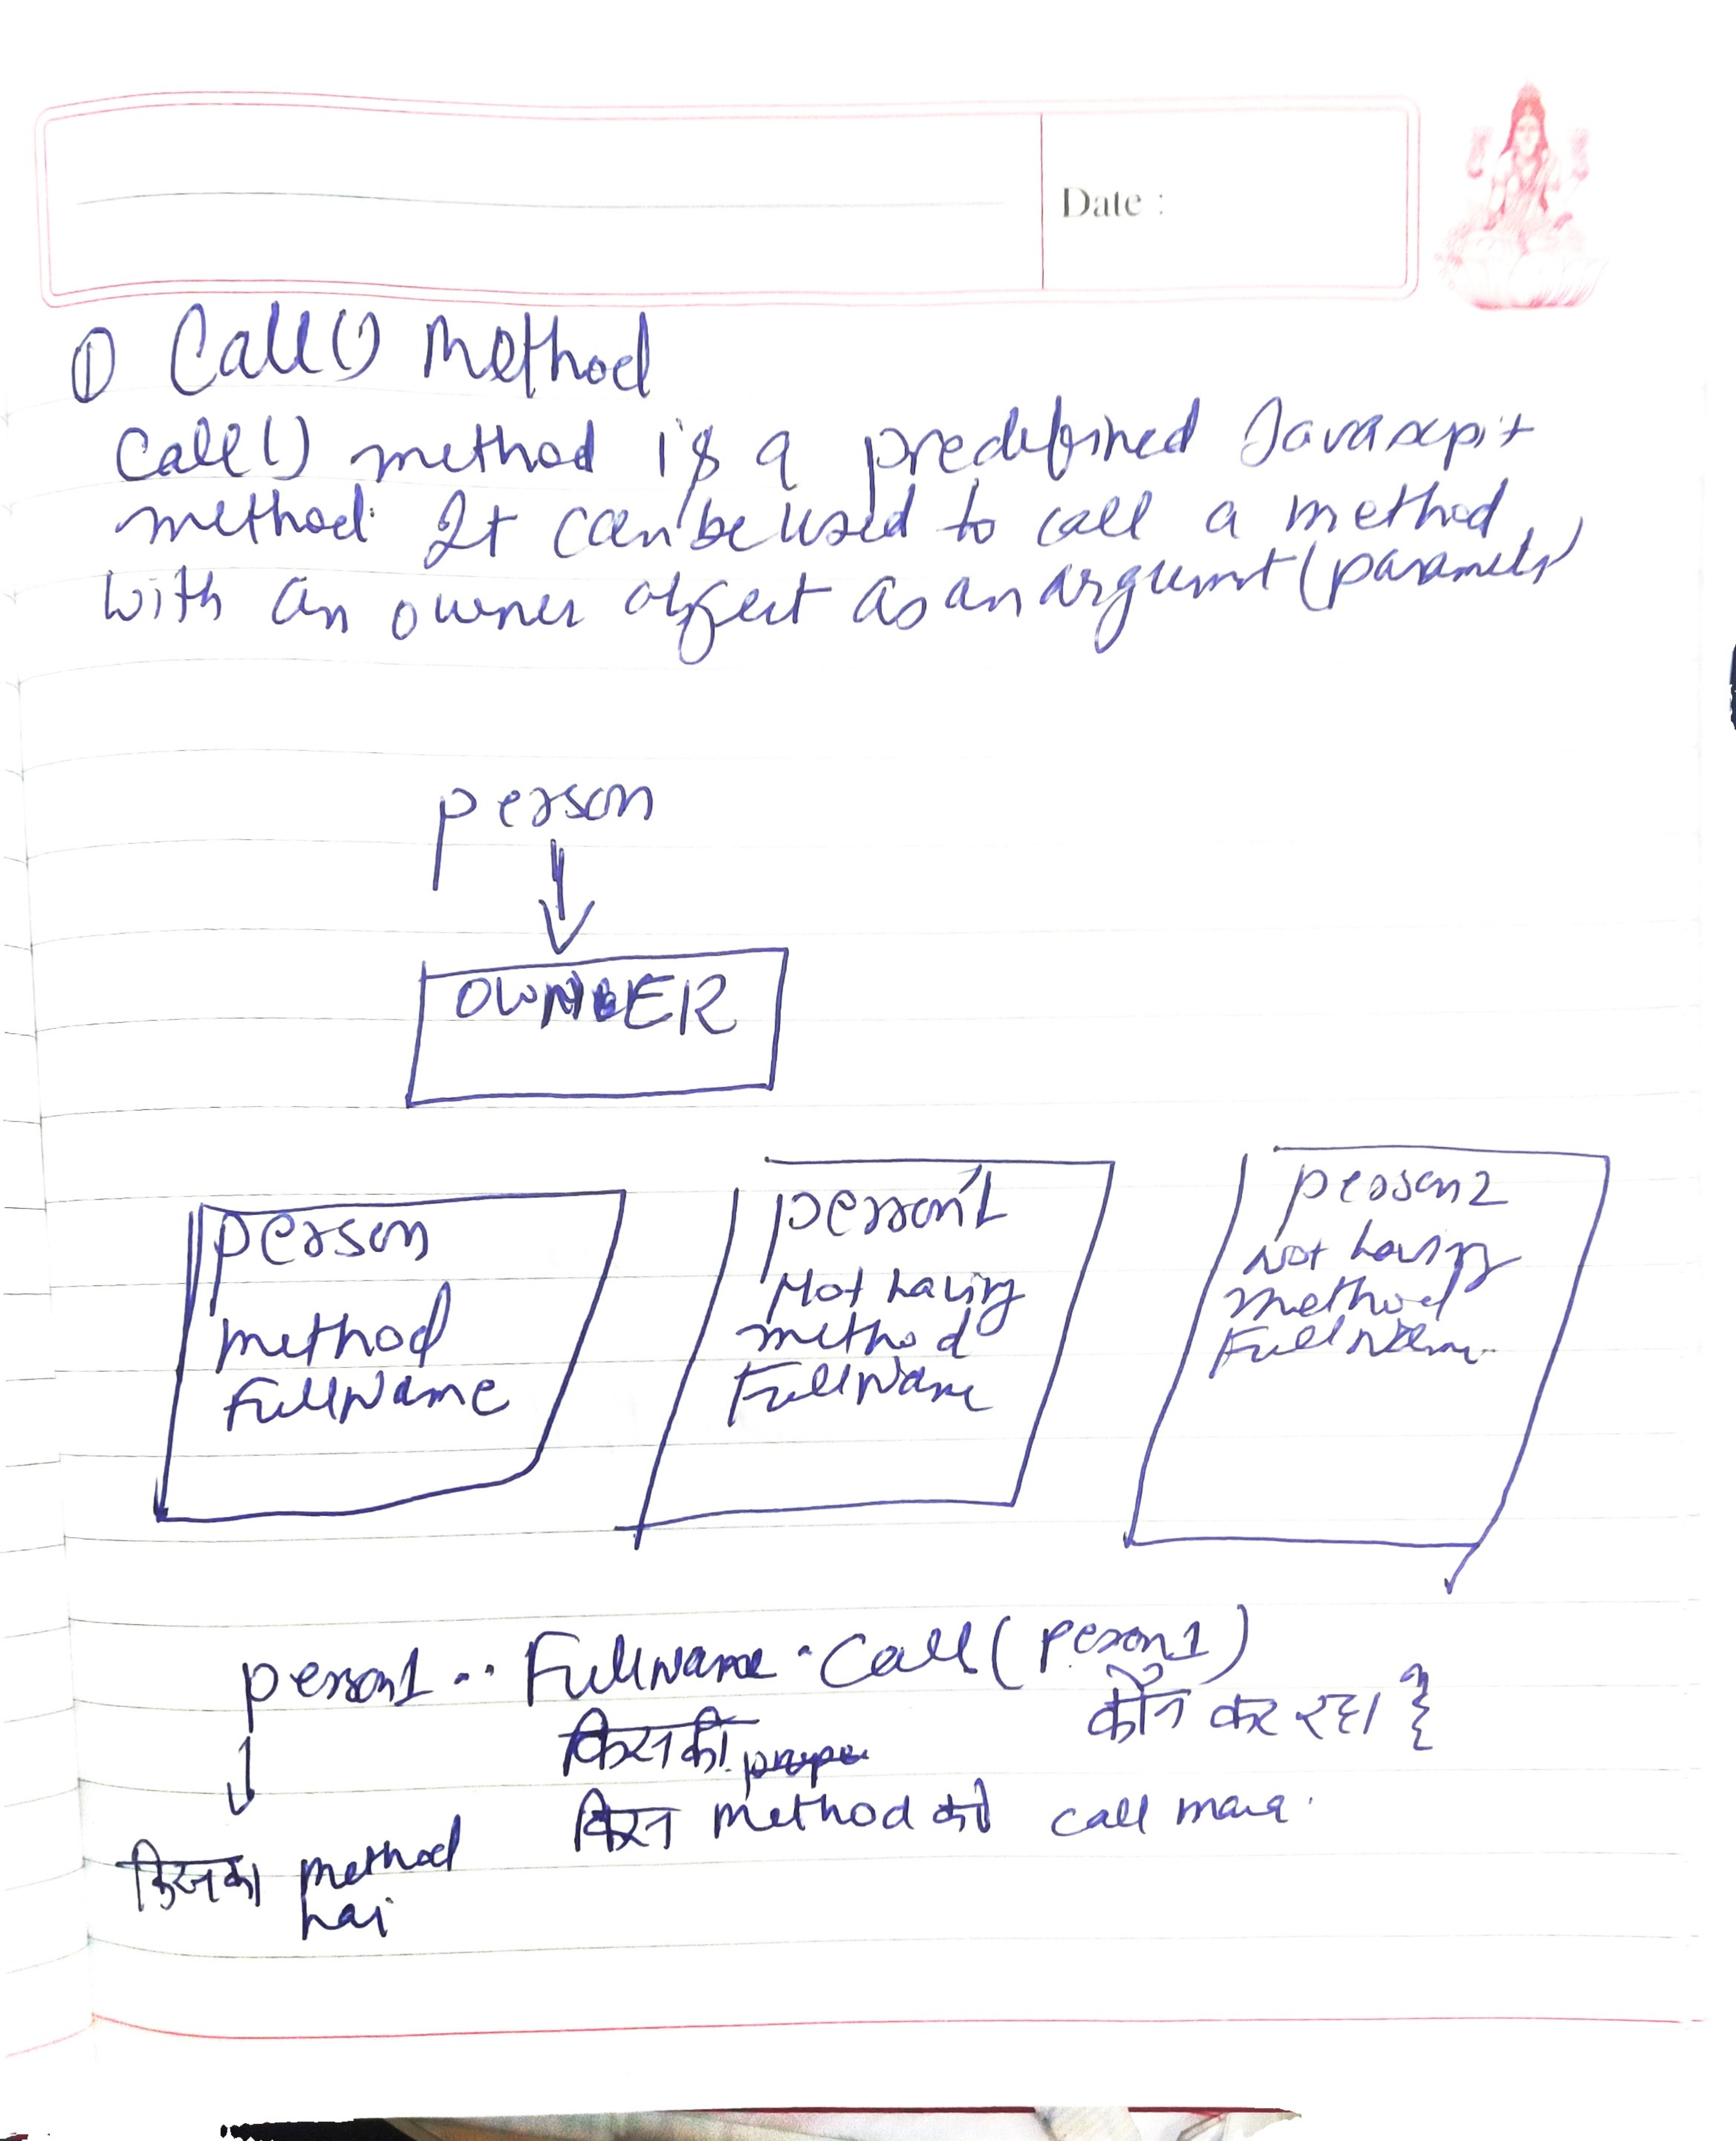 Date :
① Call() Method
Call() method is a predefined Javascript
method. It can be used to call a method
with an owner object as an argumnt (parameter)
person
OWNER
person
method
FullName
person1
Not having
method
FullName
person2
Not having
Method
FullName
person1 .. FullName . Call ( person1 )
कौन कर रहा }
किसकी prope
किस method को call mara.
किसका method
hai